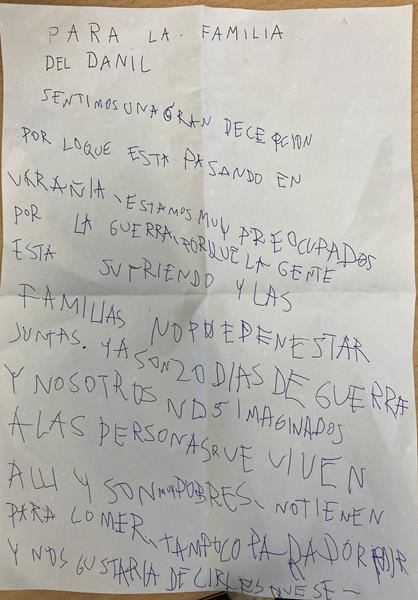 PARA LA FAMILIA
DEL DANIL
SENTIMOS UNA GRAN DECEPCION
POR LO QUE ESTA PASANDO EN
UKRAÑIA, ESTAMOS MUY PREOCUPADOS
POR LA GUERRA, PORQUE LA GENTE
ESTA SUFRIENDO Y LAS
FAMILIAS NO PUEDEN ESTAR
JUNTAS. YA SON 20 DIAS DE GUERRA
Y NOSOTROS NOS IMAGINADOS
A LAS PERSONAS QUE VIVEN
ALLI Y SON MUY POBRES, NO TIENEN
PARA COMER, TAMPOCO PARA DORMIR
Y NOS GUSTARIA DECIRLES QUE SE -